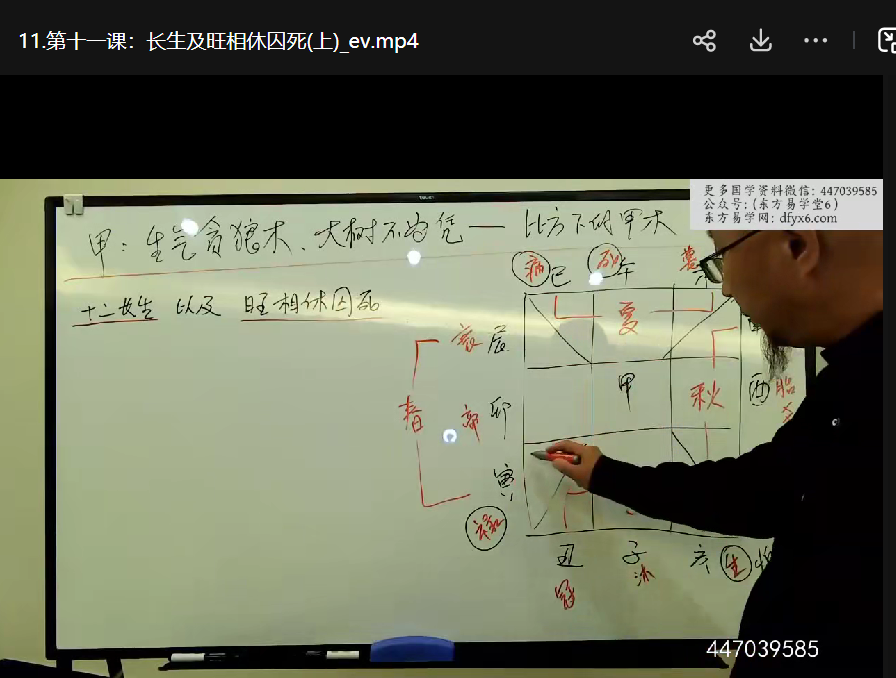 11.第十一课：长生及旺相休囚死(上)_ev.mp4
更多国学资料微信：447039585
公众号：(东方易学堂6)
东方易学网：dfyx6.com
甲：生气 木、大树不为凭 — 比方下的甲木
十二长生 以及 旺相休囚死
病 巳 死 午 墓
衰 辰 夏
春 帝 卯 甲 秋 酉 胎
寅
禄
丑 子 亥 生
冠 沐
447039585